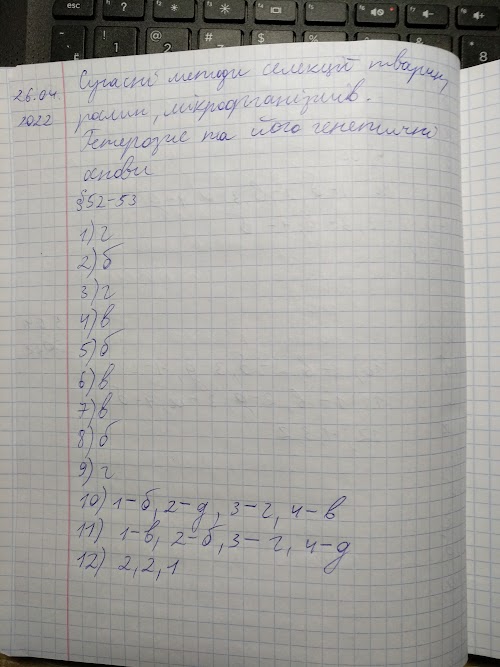 esc
26.04. Сучасні методи селекції тварин,
2022 рослин, мікроорганізмів.
Гетерозис та його генетичні
основи
§52-53
1) г
2) б
3) г
4) в
5) б
6) в
7) в
8) б
9) г
10) 1-б, 2-д, 3-г, 4-в
11) 1-в, 2-б, 3-г, 4-д
12) 2, 2, 1